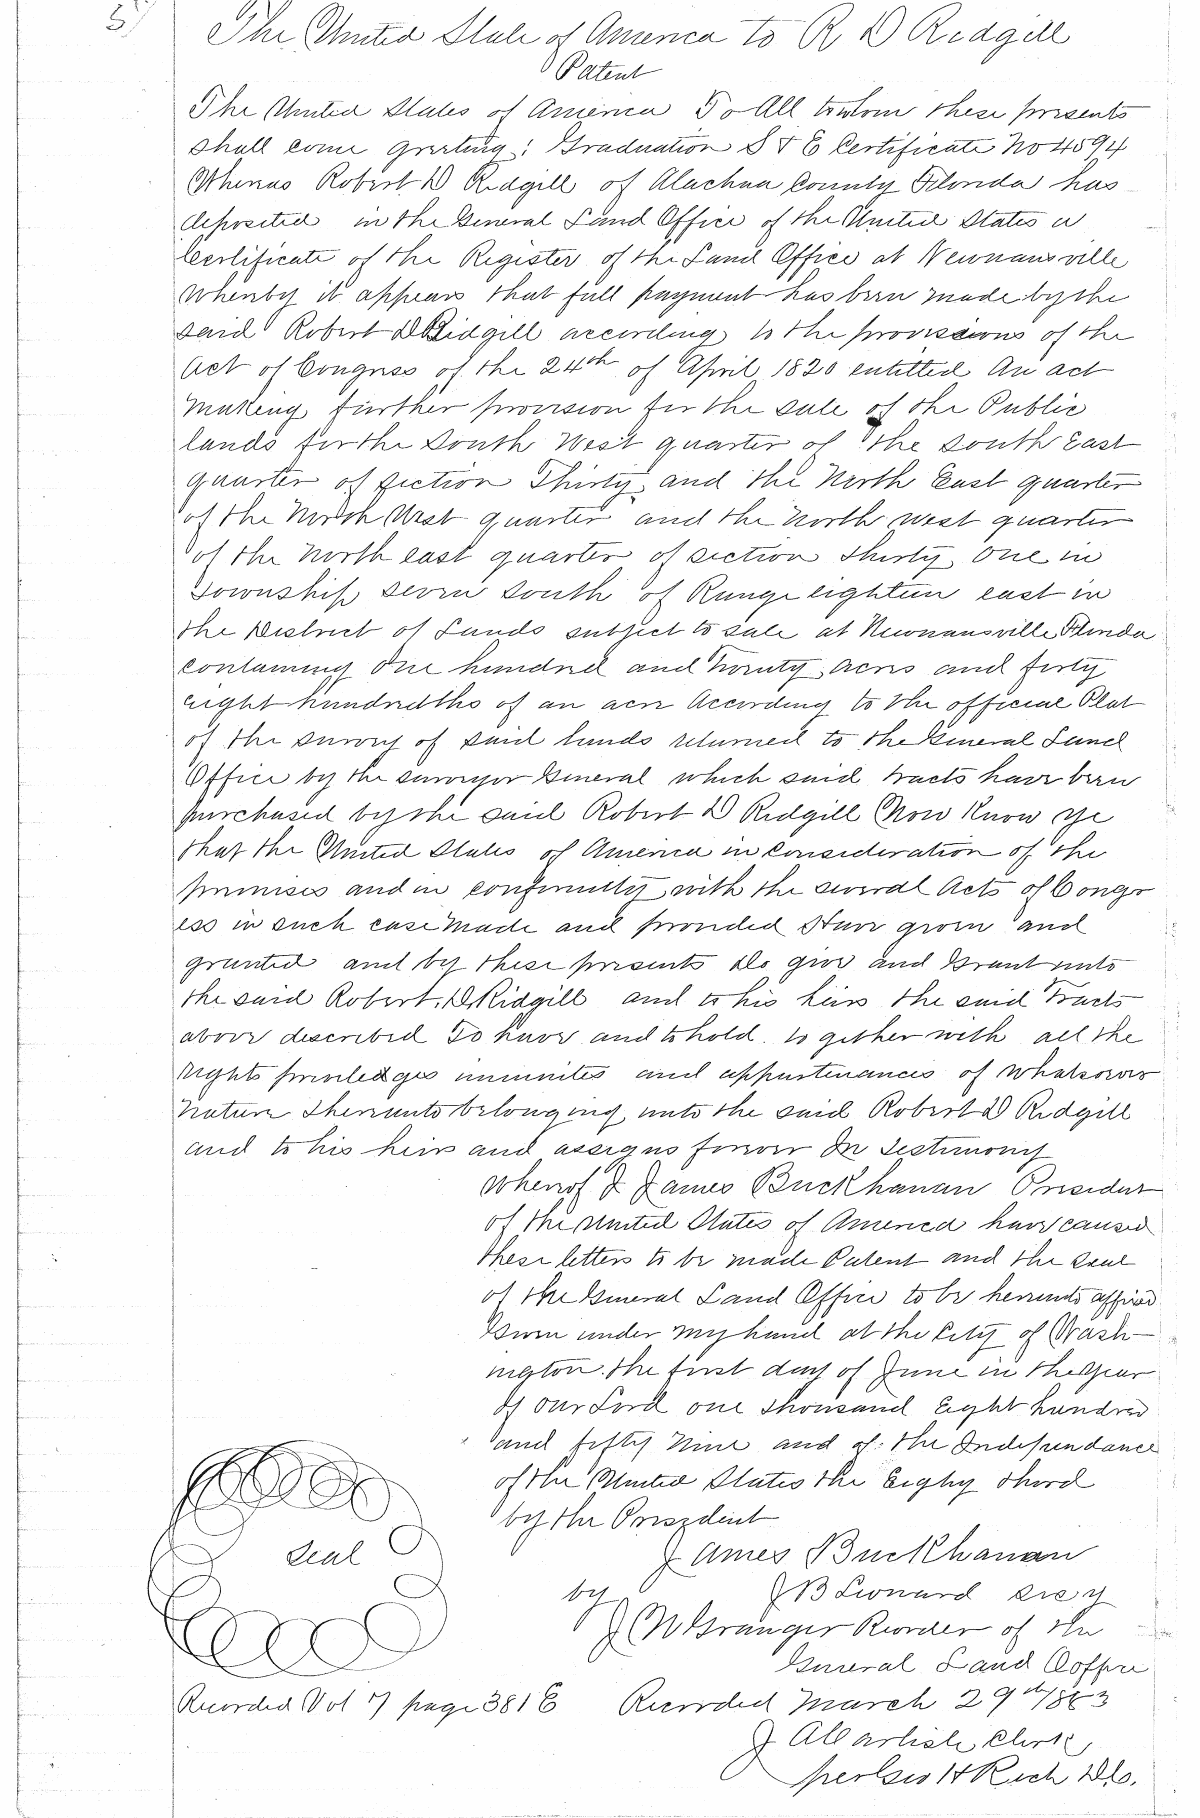 5
The United State of America to R D Redgill
Patent
The United States of America To All to whom these presents
shall come greeting: Graduation S & E Certificate No 4594
Whereas Robert D Ridgill of Alachua County Florida has
deposited in the General Land Office of the United States a
Certificate of the Register of the Land Office at Newnansville
Whereby it appears that full payment has been made by the
said Robert D Ridgill according to the provissions of the
Act of Congress of the 24th of April 1820 entitled An act
Making further provision for the sale of the Public
lands for the South West quarter of the South East
quarter of section Thirty and the North East quarter
of the North West quarter and the North west quarter
of the North east quarter of section thirty One in
Township seven South of Range eighteen east in
the District of Lands subject to sale at Newnansville Florida
containing One hundred and twenty acres and forty
eight hundredths of an acre According to the official Plat
of the survey of said lands returned to the General Land
Office by the surveyor General which said tracts have been
purchased by the said Robert D Ridgill Now Know ye
that the United States of America in consideration of the
premises and in conformity with the several Acts of Congr
ess in such case Made and provided Have given and
granted and by these presents do give and Grant unto
the said Robert. D Ridgill and to his heirs the said Tracts
above described To have and to hold to gether with all the
rights priviledges immunites and appurtenances of whatsoever
nature thereunto belonging unto the said Robert D Ridgill
and to his heirs and assigns forever In testimony
whereof I James Buckhanan President
of the United States of America have caused
these letters to be made Patent and the seal
of the General Land Office to be hereunto affixed
Given under my hand at the City of Wash-
ington the first day of June in the Year
of our Lord one thousand Eight hundred
and fifty Nine and of the Independance
of the United States the Eighy third
by the President
James Buckhanan
by J B Leonard secy
Seal
J N Granger Recorder of the
General Land Ooffice
Recorded Vol 7 page 381 E Recorded March 29th 1883
J A Carlisle Clerk
per Geo H Rich D.C.